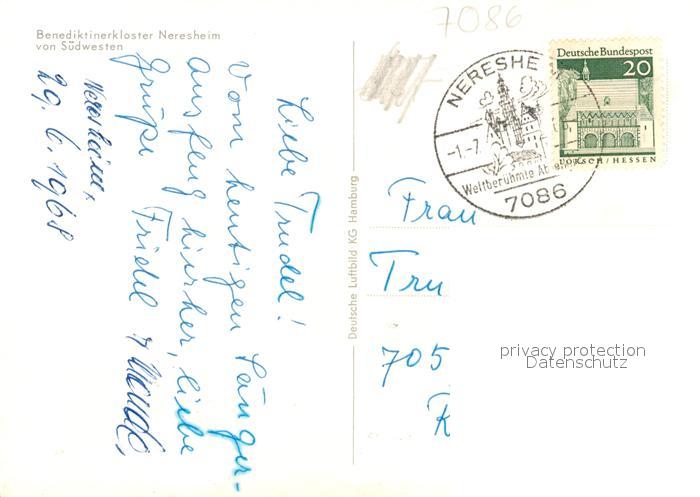 Benediktinerkloster Neresheim
von Südwesten
7086
Neresheim,
29. 6. 1968
Liebe Trudel!
Vom heutigen Sänger-
ausflug hierher, liebe
Grüße Friedel +
Deutsche Luftbild KG Hamburg
NERESHE
-1.-7.
Weltberühmte Ab
7086
Deutsche Bundespost
20
LORSCH / HESSEN
Frau
Tru
705
R
privacy protection
Datenschutz